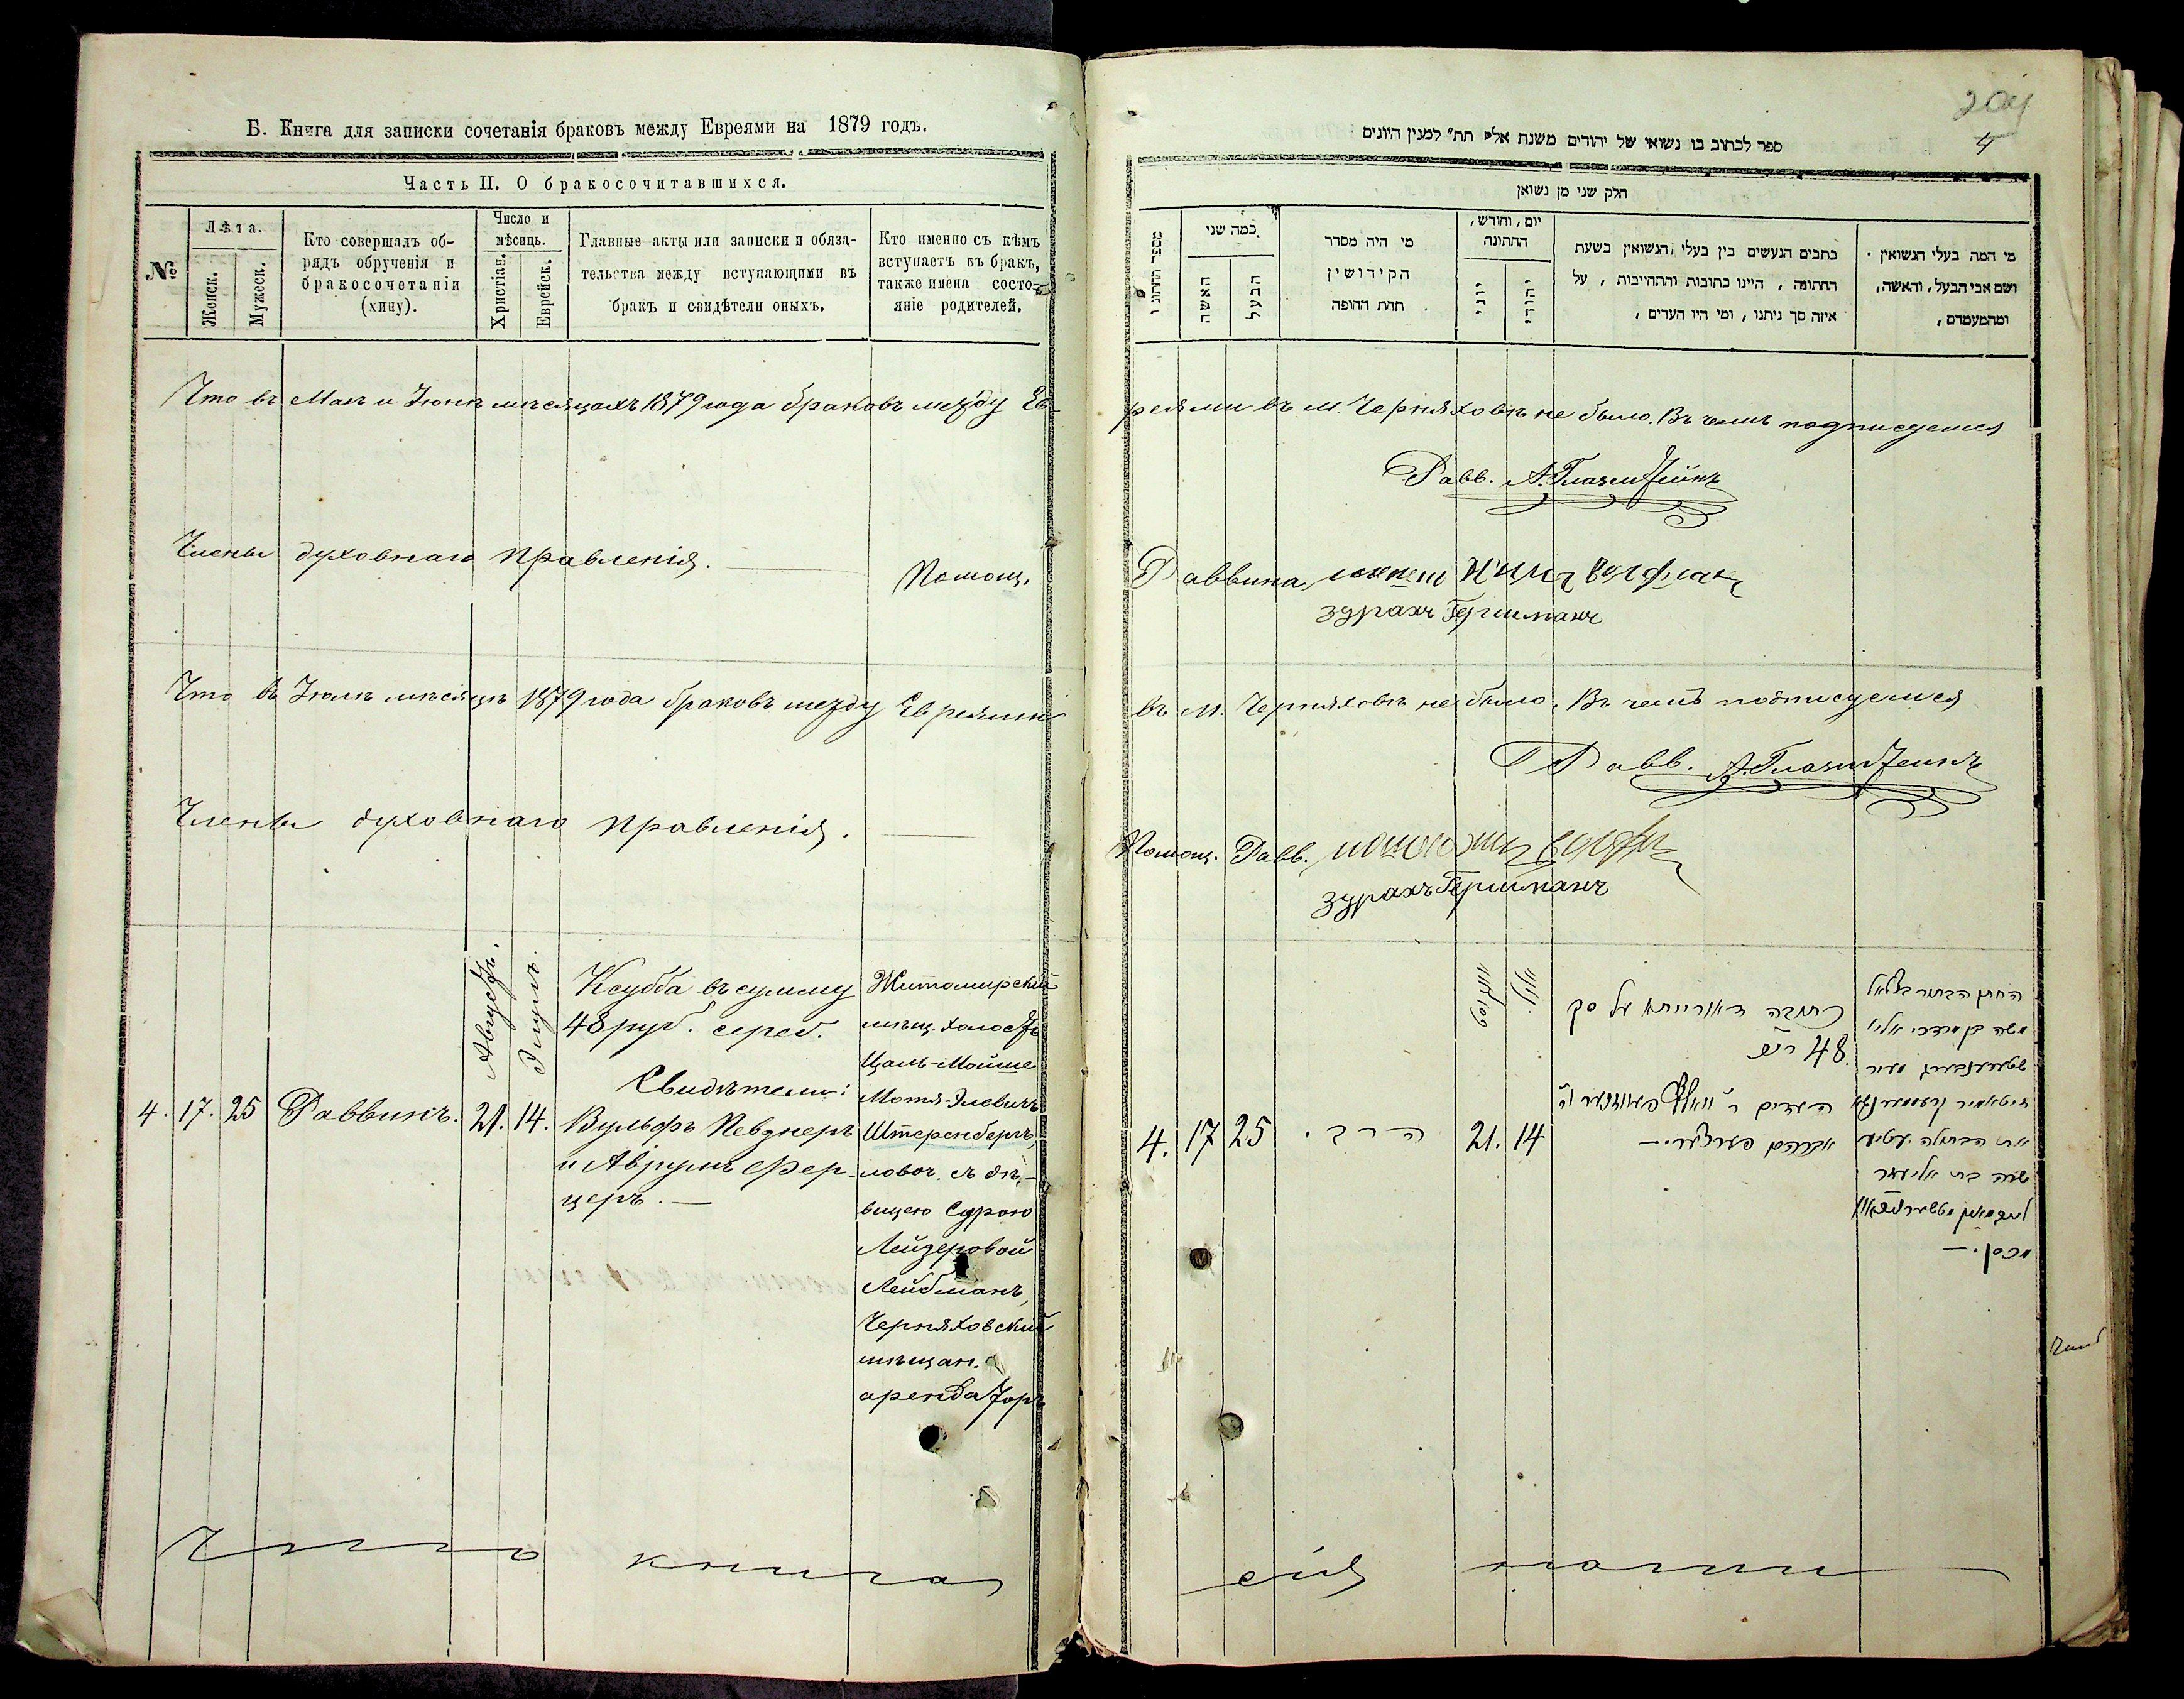 Б. Книга для записки сочетанія браковъ между Евреями на 1879 годъ.
Часть II. О бракосочитавшихся.
№
Лѣта.
Женск.
Мужеск.
Кто совершалъ об-
рядъ обрученія и
бракосочетаніи
(хину).
Число и
мѣсяць.
Христіан.
Еврейск.
Главные акты или записки и обяза-
тельства между вступающими въ
бракъ и свидѣтели оныхъ.
Кто именно съ кѣмъ
вступаетъ въ бракъ,
также имена состо-
яніе родителей.
Что въ Маѣ и Іюнѣ мѣсяцахъ 1879 года браковъ между Ев-
Члены духовнаго правленія.
Помощ.
Что въ Іюлѣ мѣсяцѣ 1879 года браковъ между Евреями
Члены духовнаго правленія.
4. 17. 25 Раввинъ.
Августъ.
Элулъ.
21. 14.
Ксубба въ сумму
48 руб. сереб.
Свидѣтели:
Вульфъ Певзнеръ
и Аврумъ Фер-
церъ.
Житомирскій
мѣщ. холостъ
Цаль-Мойше
Мотя-Элевичъ
Штеренбергъ,
ловоч. съ дѣ-
вицею Сурою
Лейзеровой
Лейбманъ,
Черняховскій
мѣщан.
арендаторъ
книга
204
4
ספר לכתוב בו נשואי של יהודים משנת אלף תת״ למנין היונים
חלק שני מן נשואן
מספר החתונו
כמה שני
האשה
הבעל
מי היה מסדר
הקידושין
תחת החופה
יום, וחורש,
החתונה
יוני
יהודי
כתבים הנעשים בין בעלי הנשואין בשעת
החתונה, היינו כתובות והתחייבות, על
איזה סך ניתנו, ומי היו העדים,
מי המה בעלי הנשואין
ושם אבי הבעל, והאשה,
ומהמעמדם,
реями въ м. Черняховѣ не было. Въ чемъ подписуемся
Равв. А. Глазштейнъ
Раввина
зурахъ Гершманъ
въ м. Черняховѣ не было. Въ чемъ подписуемся
Равв. А. Глазштейнъ
Помощ. Равв.
зурахъ Гершманъ
4. 17 25 הרב. 21. 14
כתובה דאורייתא על סך
48
העדים ר׳
אברהם פערצער.
החתן הבחור בצלאל
משה בן מרדכי אליא
שטערענבערג מעיר
את הבתולה
שרה בת אליעזר
сія